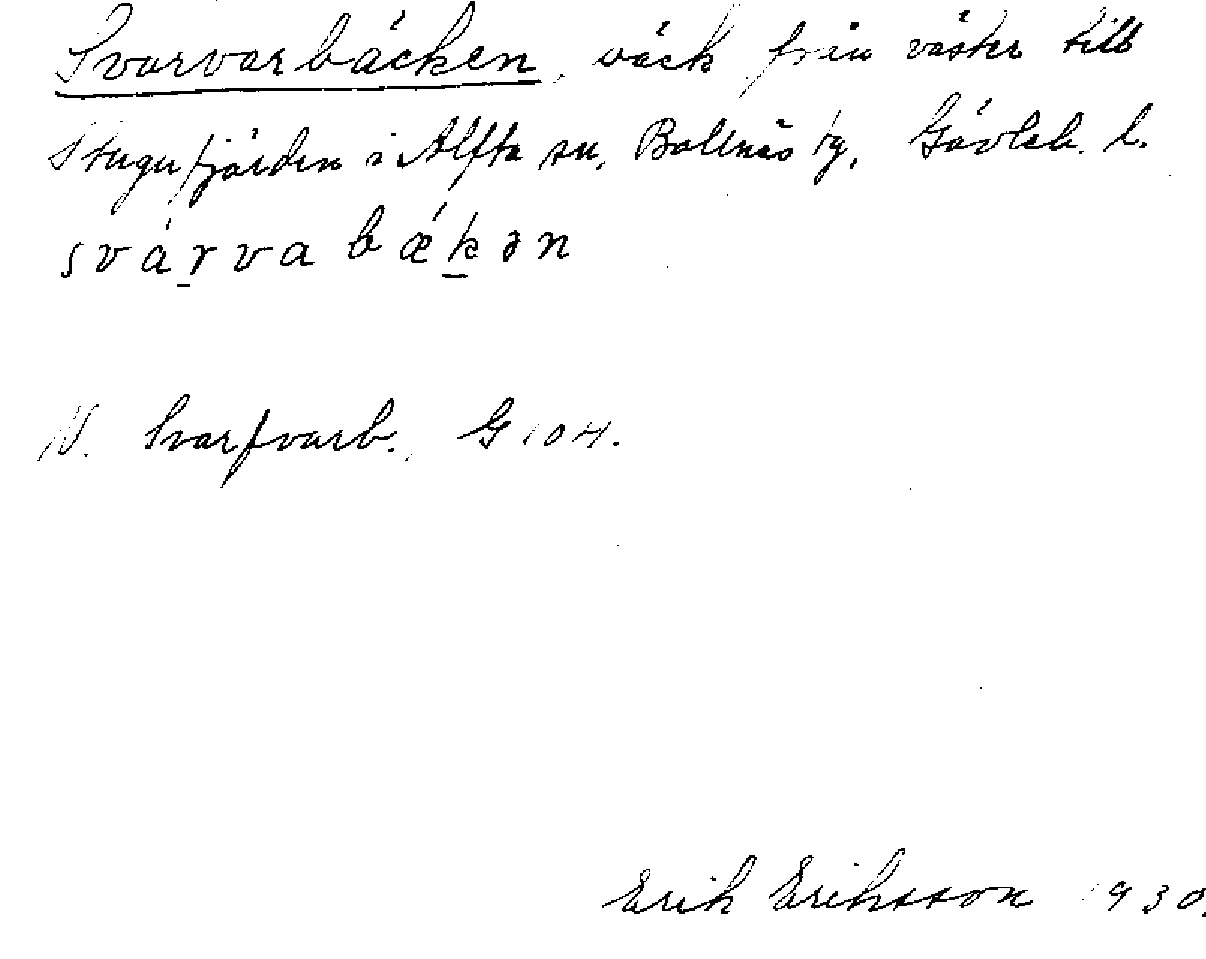 Svarvarbäcken, bäck från väster till
Stugufjärden i Alfta sn, Bollnäs tg, Gävleb. l.
svárva bǽkən
N. Svarfvarb., G 104.
Erik Eriksson 1930.